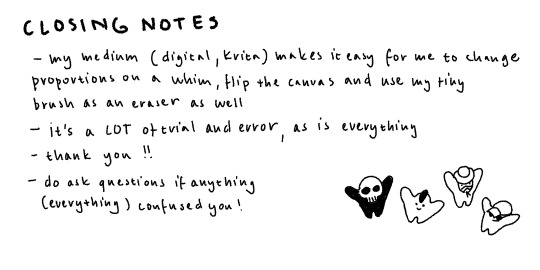 CLOSING NOTES
- my medium (digital, krita) makes it easy for me to change
proportions on a whim, flip the canvas and use my tiny
brush as an eraser as well
- it's a LOT of trial and error, as is everything
- thank you !!
- do ask questions if anything
(everything) confused you!